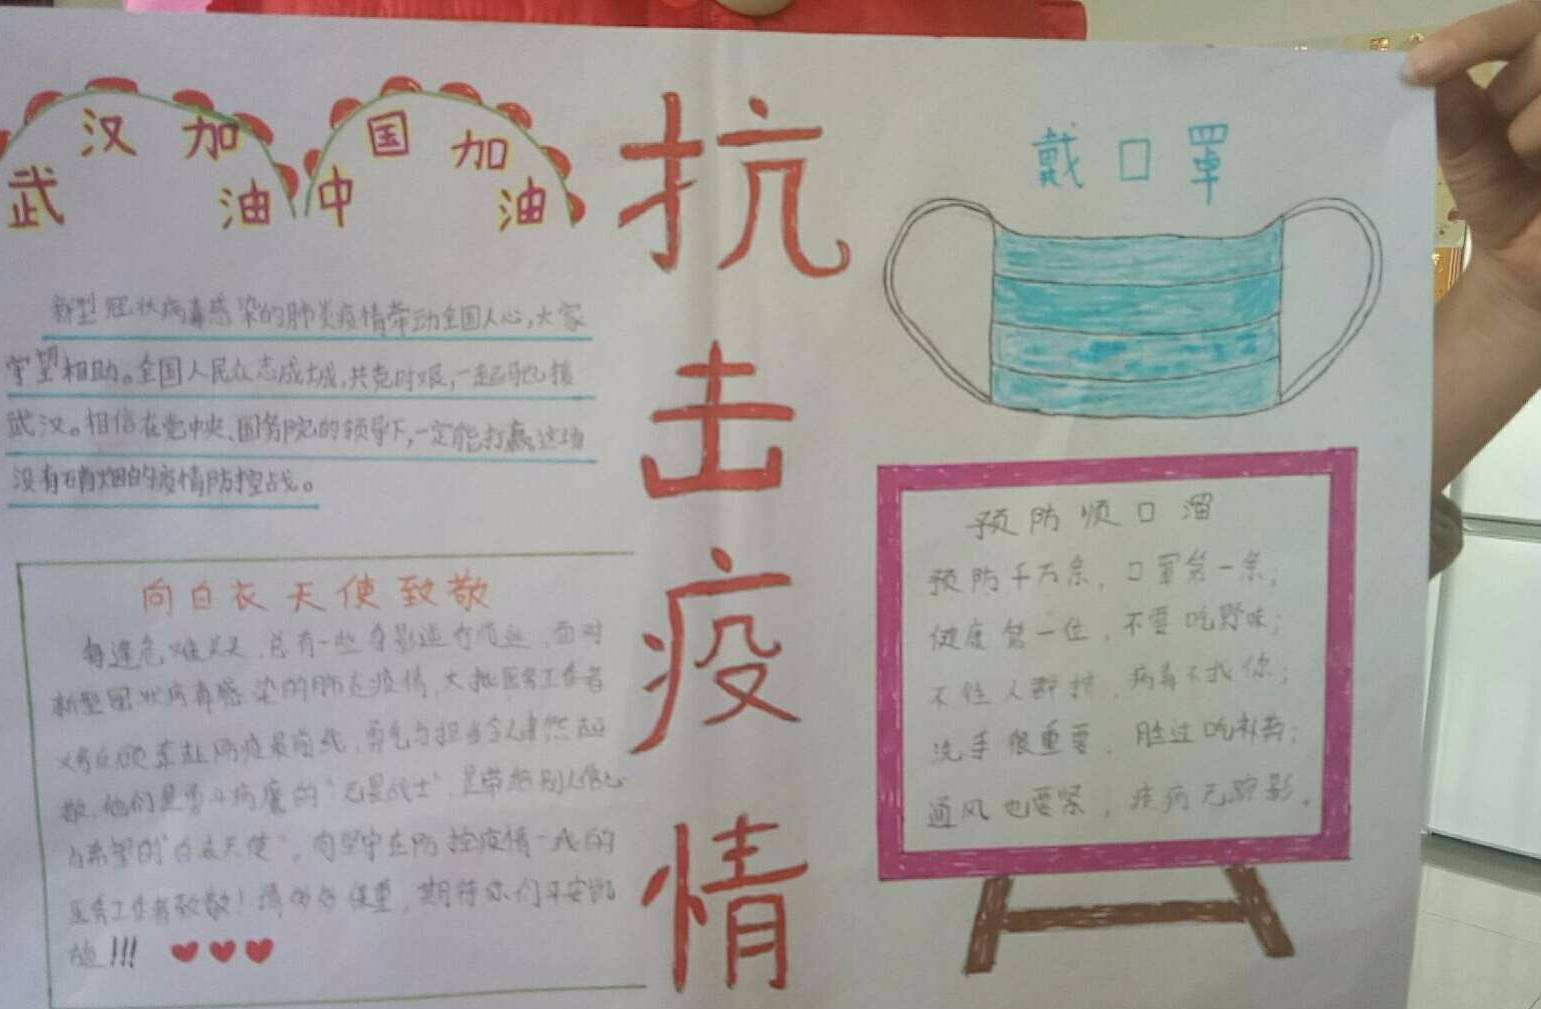 武汉加油
中国加油
抗击疫情
戴口罩
新型冠状病毒感染的肺炎疫情牵动全国人心,大家
守望相助。全国人民众志成城,共克时艰,一起驰援
武汉。相信在党中央、国务院的领导下,一定能打赢这场
没有硝烟的疫情防控战。
向白衣天使致敬
每逢危难关头,总有一些身影逆行而上,面对
新型冠状病毒感染的肺炎疫情,大批医务工作者
义务反顾奔赴防疫最前线,勇气与担当令人肃然起
敬,他们是勇斗病魔的“无畏战士”,是带给别人信心
与希望的“白衣天使”,向坚守在防控疫情一线的
医务工作者致敬!请务必保重,期待你们平安凯
旋!!!
预防顺口溜
预防千万条,口罩第一条;
健康第一位,不要吃野味;
不往人群挤,病毒不找你;
洗手很重要,胜过吃补药;
通风也要紧,疾病无踪影。